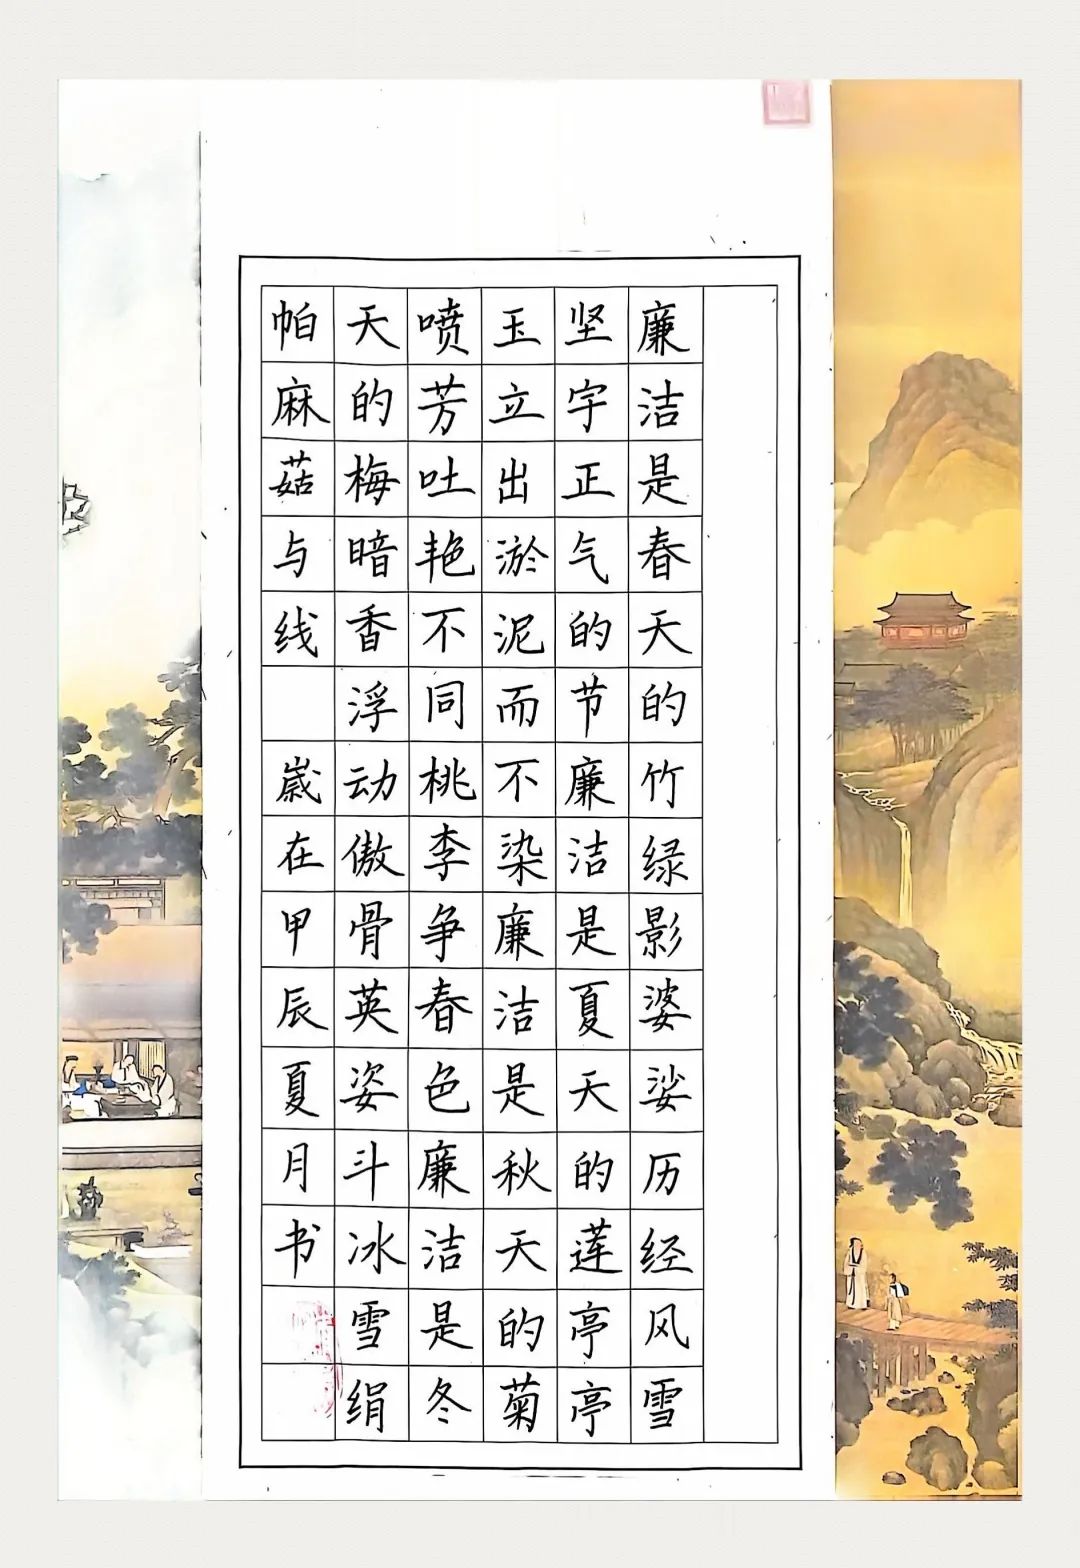 廉洁是春天的竹绿影婆娑历经风雪
坚宇正气的节廉洁是夏天的莲亭亭
玉立出淤泥而不染廉洁是秋天的菊
喷芳吐艳不同桃李争春色廉洁是冬
天的梅暗香浮动傲骨英姿斗冰雪绢
帕麻菇与线 崴在甲辰夏月书